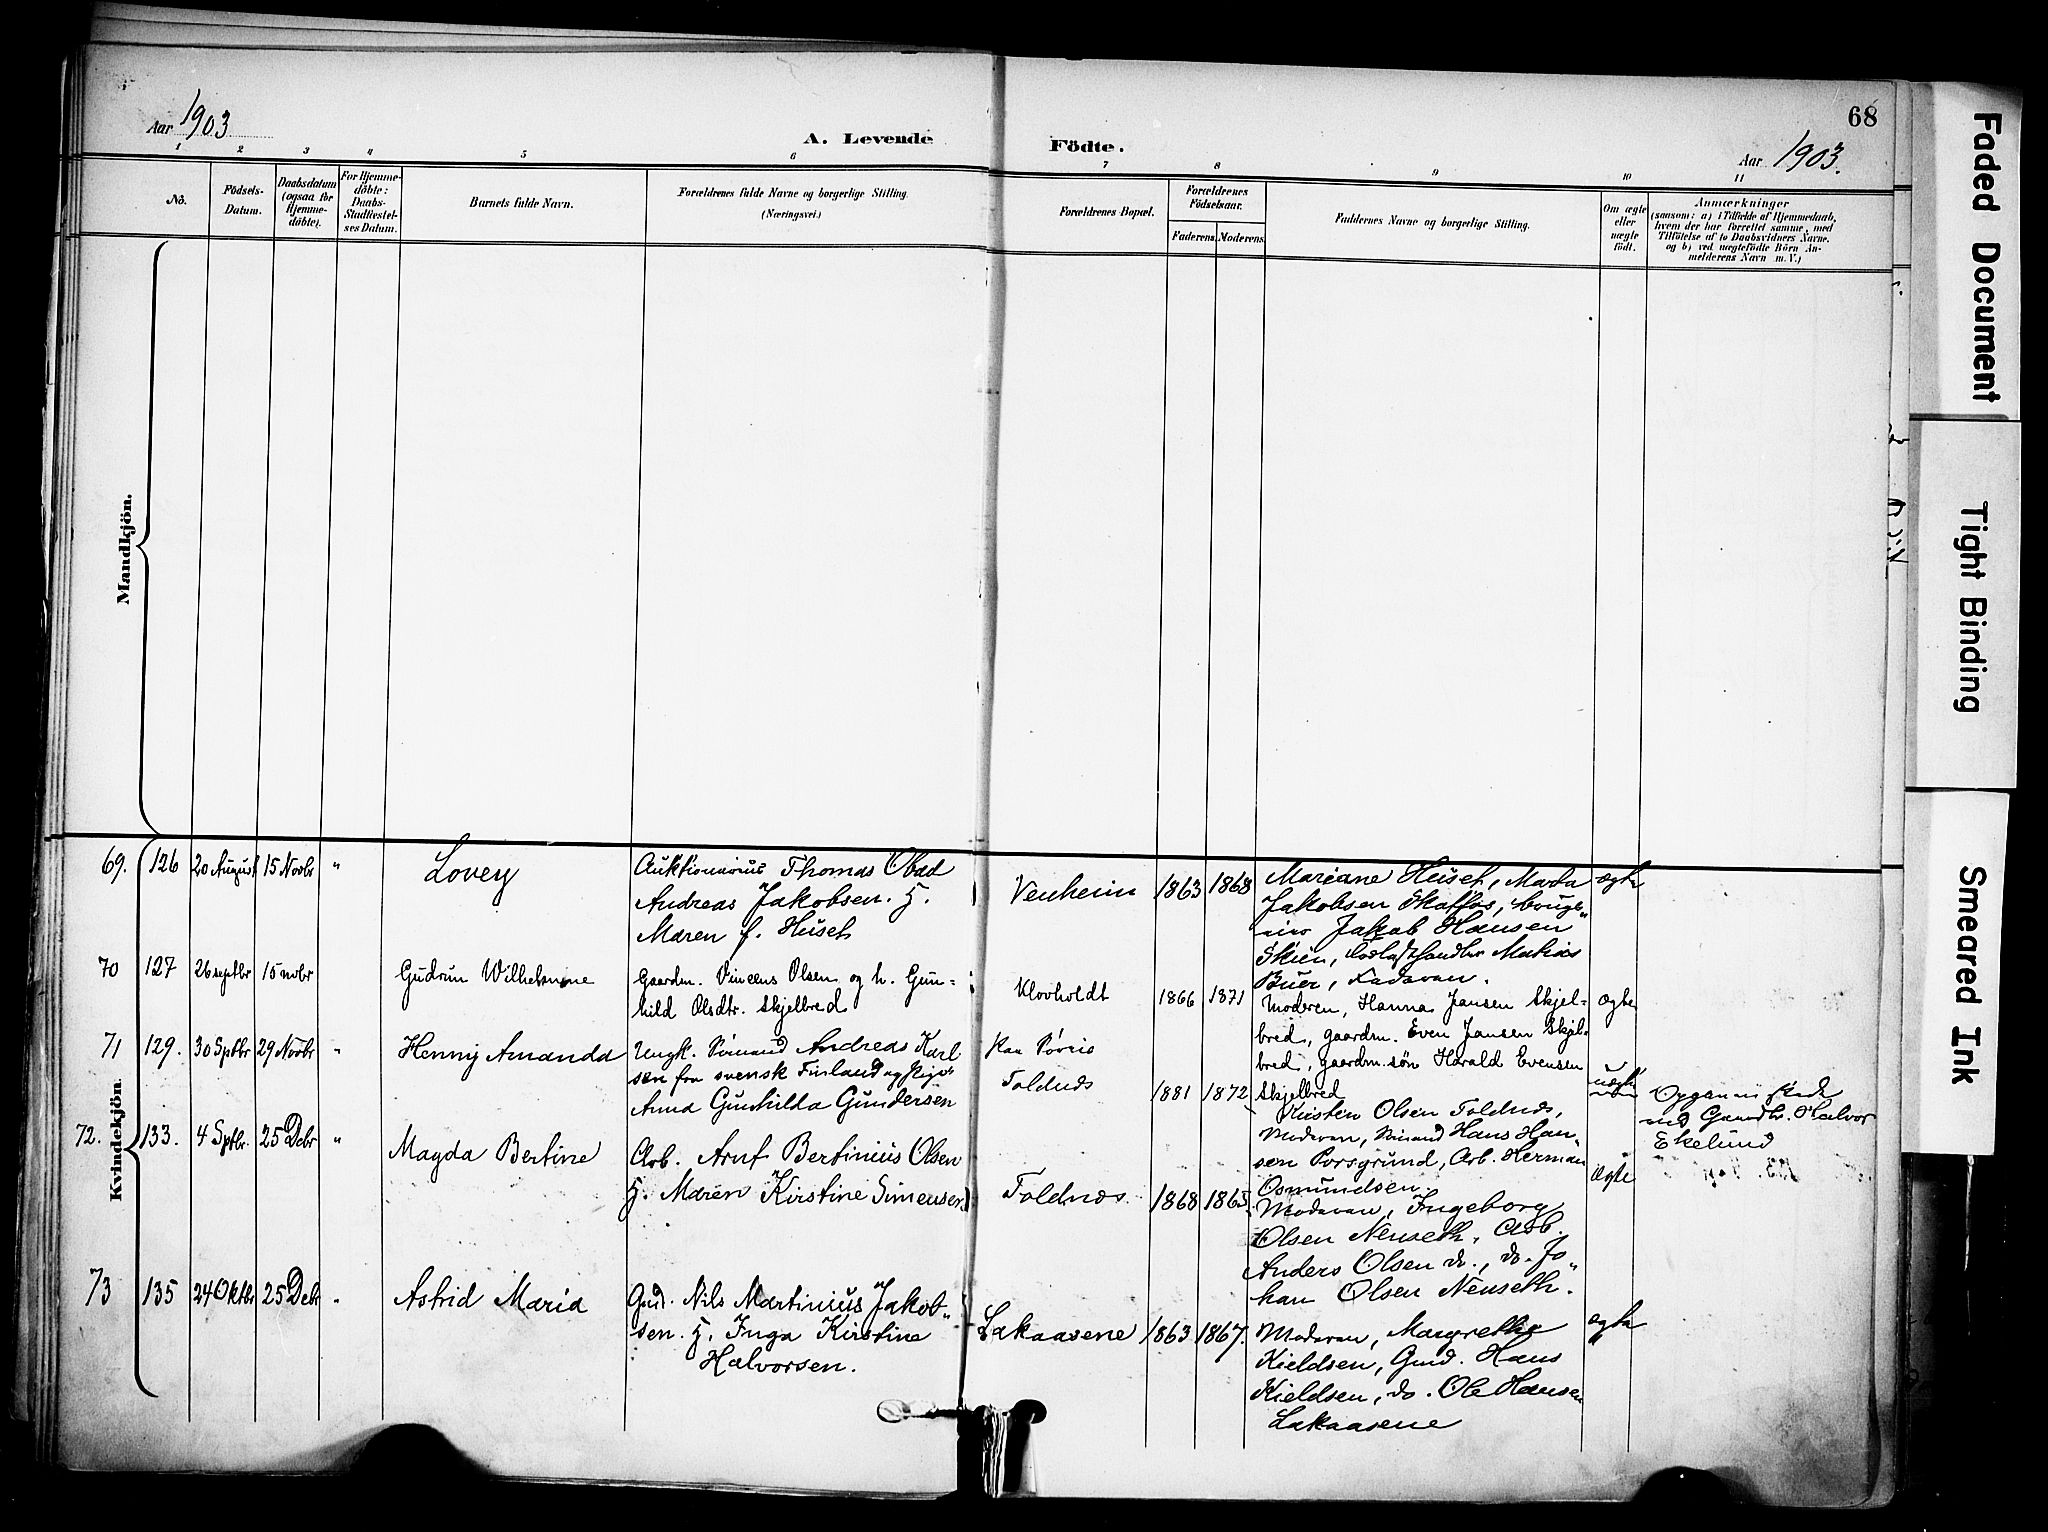 68
Aar 1903
A. Levende Födte.
Aar 1903.
1 2 3 4 5 6 7 8 9 10 11
No.
Födsels-
Datum.
Daabsdatum
(ogsaa for
Hjemme-
döbte).
For Hjemme-
döbte:
Daabs-
Stadfæstel-
ses Datum.
Barnets fulde Navn.
Forældrenes fulde Navne og borgerlige Stilling.
(Næringsvei.)
Forældrenes Bopæl.
Forældrenes
Födselsaar.
Faderens. Moderens.
Faddernes Navne og borgerlige Stilling.
Om ægte
eller
uægte
födt.
Anmærkninger
(saasom: a) i Tilfælde af Hjemmedaab,
hvem der har forrettet samme, med
Tilföielse af to Daabsvidners Navne.
og b) ved uægtefödte Börn An-
melderens Navn m. V.)
Mandkjön.
Kvindekjön.
69. 126 20 August 15 Novbr " Lovey
Auktionarius Thomas Obed
Andreas Jakobsen. H.
Maren f. Huset
Venheim 1863 1868
Mariane Huset, Marta
Jakobsen Skaffos,
Jakob Hansen
Skien, Mathias
Buer,
ægte
70 127 26 septbr 15 novbr Gudrun Wilhelmine
Gaardm. Vincens Olsen og h. Gun-
hild Olsdtr. Skjelbred
Klovholdt 1866 1871
Moderen, Hanna Jansen Skjel-
bred, gaardm. Even Jansen Skjel-
bred, gaardm. søn Harald Evensen
Skjelbred
ægte
71 129. 30 Sptbr 29 Novbr " Henny Amanda
Ungk. Sömand Andreas Karl
sen fra svensk Finland og Pige
Anna Gunhilda Gundersen
Toldnæs 1881 1872
Kirsten Olsen Toldnæs,
Moderen, Sömand Hans Han-
sen Porsgrund, Arb. Herman
Osmundsen
uægte
Halvor
Ekelund
72. 133. 4 Sptbr. 25 Debr " Magda Bertine
Arb. Arnt Bertinius Olsen
H. Maren Kirstine Simensen
Toldnæs 1868 1865
Moderen, Ingeborg
Olsen Nenseth, Arb.
Anders Olsen do., do. Jo
han Olsen Nenseth.
ægte
73 135 24 Oktbr 25 Debr " Astrid Maria
Gmd. Nils Martinius Jakob-
sen. H. Inga Kirstine
Halvorsen.
Lakaasene 1863 1867.
Moderen, Margrethe
Kieldsen, Gmd. Hans
Kieldsen, do. Ole Hansen
Lakaasene
ægte
Faded Document
Tight Binding
Smeared Ink